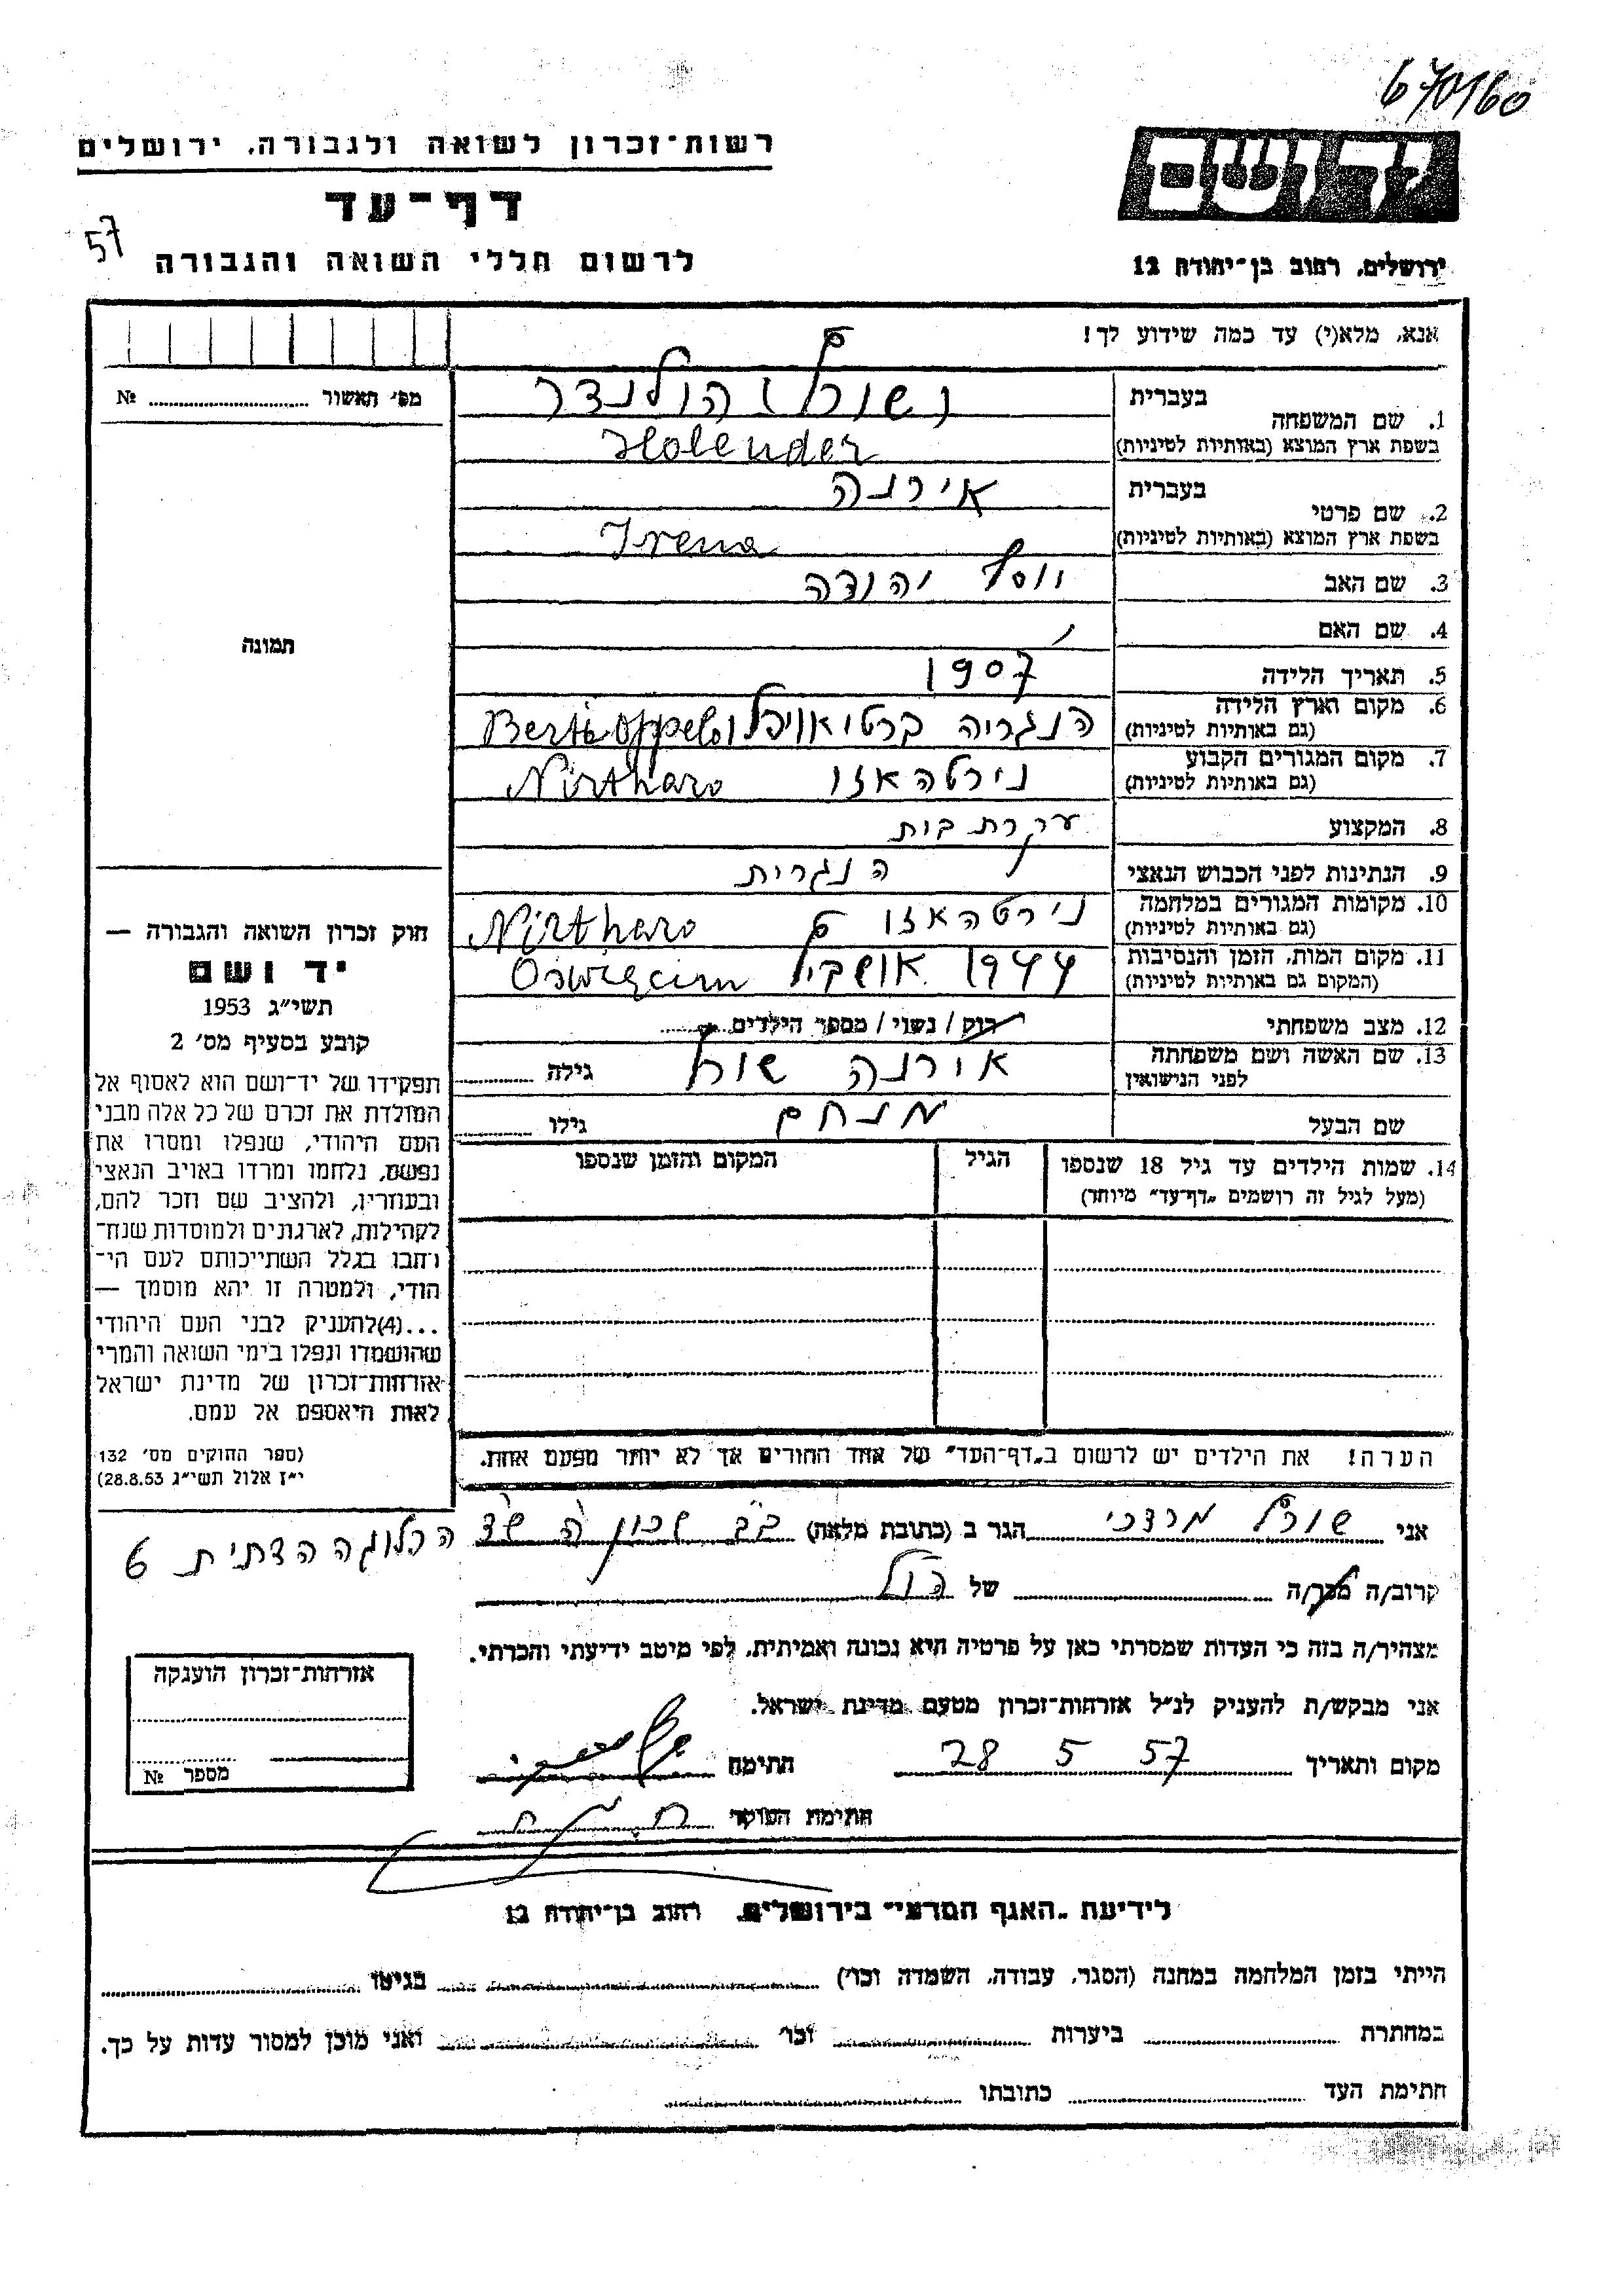 670160
רשות-זכרון לשואה ולגבורה, ירושלים
יד ושם
דף-עד
57
לרשום חללי השואה והגבורה
ירושלים, רחוב בן-יהודה 12
אנא, מלא(י) עד כמה שידוע לך!
מס' תאשור № 
1. שם המשפחה בעברית הולנדר
בשפת ארץ המוצא (באותיות לטיניות) Holender
2. שם פרטי בעברית אירנה
בשפת ארץ המוצא (באותיות לטיניות) Irena
3. שם האב יהודה
4. שם האם
5. תאריך הלידה 1907
6. מקום וארץ הלידה (גם באותיות לטיניות) הנגריה
7. מקום המגורים הקבוע (גם באותיות לטיניות) נירטהאזו Nirtharo
8. המקצוע עקרת בית
9. הנתינות לפני הכבוש הנאצי הנגרית
10. מקומות המגורים במלחמה (גם באותיות לטיניות) נירטהאזו Nirtharo
11. מקום המות, הזמן והנסיבות (המקום גם באותיות לטיניות) 1944 Oswięcim
12. מצב משפחתי רוק / נשוי / מספר הילדים
13. שם האשה ושם משפחתה לפני הנישואין אירנה גילה
שם הבעל מנחם גילו
14. שמות הילדים עד גיל 18 שנספו הגיל המקום והזמן שנספו
(מעל לגיל זה רושמים "דף-עד" מיוחד)
הערה! את הילדים יש לרשום ב"דף-העד" של אחד ההורים אך לא יותר מפעם אחת.
תמונה
חוק זכרון השואה והגבורה —
יד ושם
תשי"ג 1953
קובע בסעיף מס' 2
תפקידו של יד-ושם הוא לאסוף אל
המולדת את זכרם של כל אלה מבני
העם היהודי, שנפלו ומסרו את
נפשם, נלחמו ומרדו באויב הנאצי
ובעוזריו, ולהציב שם וזכר להם,
לקהילות, לארגונים ולמוסדות שנח-
רבו בגלל השתייכותם לעם הי-
הודי, ולמטרה זו יהא מוסמך —
...(4)להעניק לבני העם היהודי
שהושמדו ונפלו בימי השואה והמרי
אזרחות-זכרון של מדינת ישראל
לאות היאספם אל עמם.
(ספר החוקים מס' 132
י"ז אלול תשי"ג 28.8.53)
אני מרדכי הגר ב (כתובת מלאה) בב שכון ה
קרוב/ה מכר/ה של
מצהיר/ה בזה כי העדות שמסרתי כאן על פרטיה היא נכונה ואמיתית, לפי מיטב ידיעתי והכרתי.
אני מבקש/ת להעניק לנ"ל אזרחות-זכרון מטעם מדינת ישראל.
מקום ותאריך 28 5 57 חתימה
חתימת הפוקד
אזרחות-זכרון הוענקה
מספר №
לידיעת "האגף המדעי" בירושלים, רחוב בן-יהודה 12
הייתי בזמן המלחמה במחנה (הסגר, עבודה, השמדה וכו') בגיטו
במחתרת ביערות וכו' ואני מוכן למסור עדות על כך.
חתימת העד כתובתו